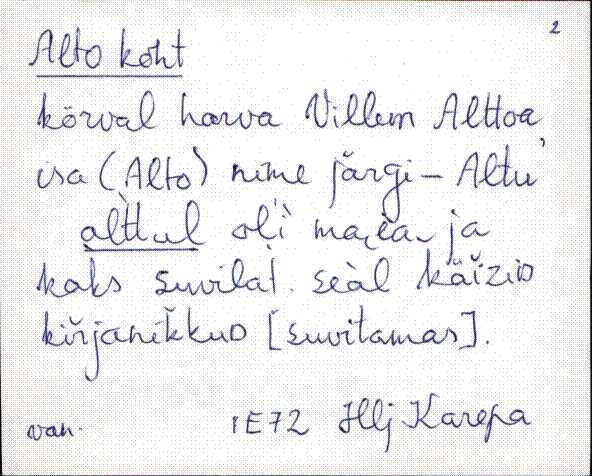 2
Alto koht
kõrval harva Villem Alttoa,
isa (Alto) nime järgi – Altu
àlttul oli maea ja
kaks suvilat. seàl käĭzid
kiřjanĭkkuD [suvitamas].
van. IE72 Hlj Karepa